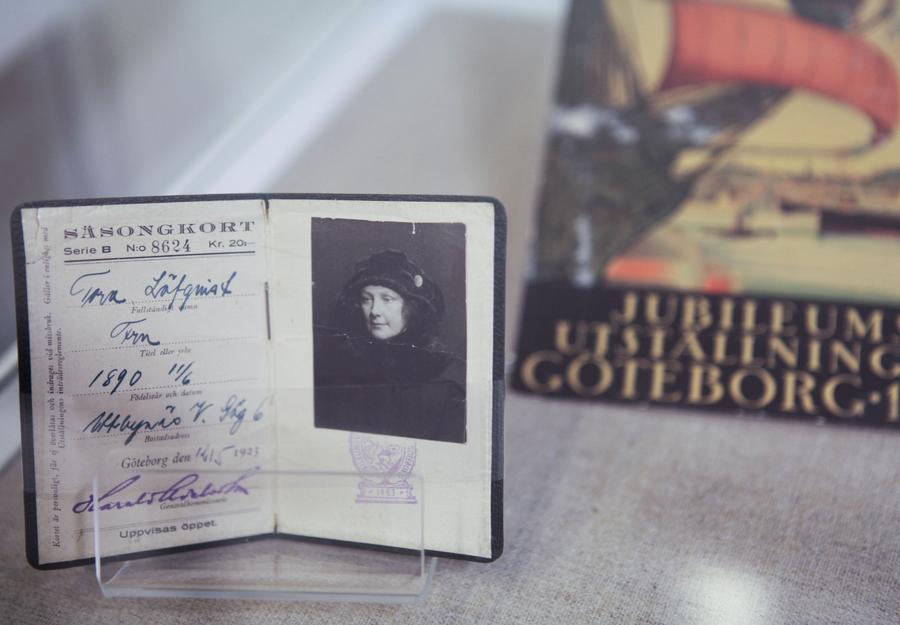 SÄSONGKORT
Serie B N:o 8624 Kr. 20:—
Tora Löfqvist
Fullständigt namn
Fru
Titel eller yrke
1890 11/6
Födelseår och datum
Utbynäs V. Gbg 6
Bostadsadress
Göteborg den 14/5 1923
Harald
Generalkommissarie
Uppvisas öppet.
Kortet är personligt, får ej överlåtas och indrages vid missbruk. Gäller i enlighet med
Utställningens inträdesreglemente.
1923
JUBILEUMS
UTSTÄLLNING
GÖTEBORG · 1